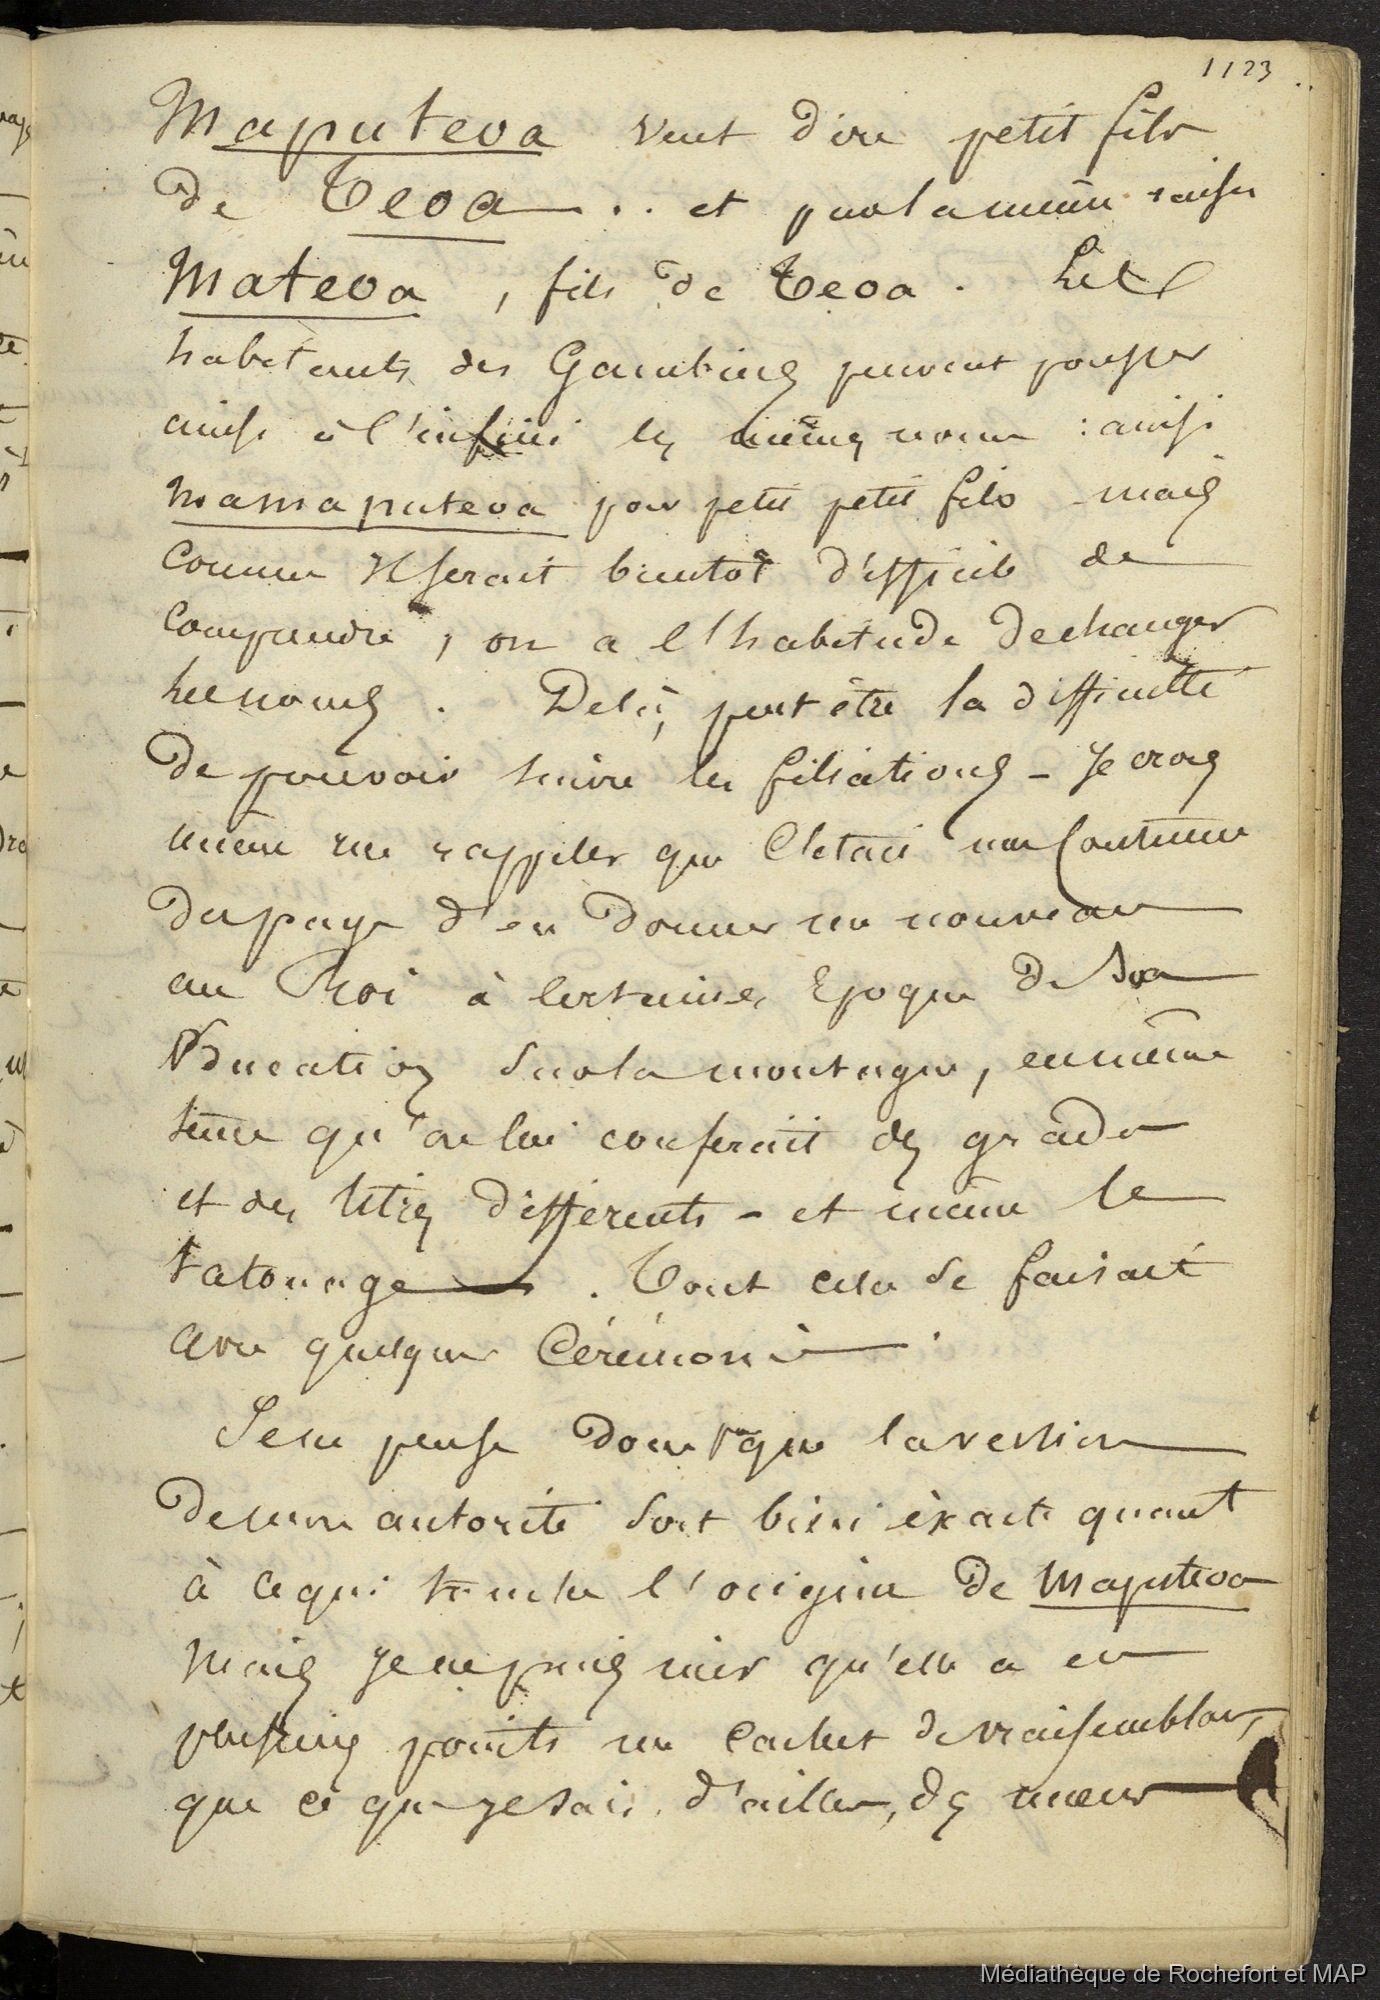 1123
Maputeoa veut dire petit fils
de Teoa .. et par la même raison
Mateoa, fils de Teoa. Les
habitants des Gambiers peuvent pousser
ainsi à l'infini les mêmes noms : ainsi
mamaputeoa pour petit petit fils mais
comme il serait bientôt difficile de
comprendre, on a l'habitude de changer
les noms. De là, peut être la difficulté
de pouvoir suivre les filiations - Je crois
même me rappeler que C'était une Coutume
du pays d'en donner un nouveau
au Roi à certaines Epoques de son
Education sur la montagne, en même
tems qu'on lui conferait des grades
et des titres différents - et même le
tatouage. Tout cela se faisait
avec quelques Cérémonie.
Je ne pense donc pas que la version
de mon autorité soit bien exacte quant
à ce qui touche l'origine de Maputeoa
Mais je ne puis nier qu'elle a en
plusieurs points un cachet de vraisemblance,
que ce que je sais d'ailleurs, des mœurs
Médiathèque de Rochefort et MAP